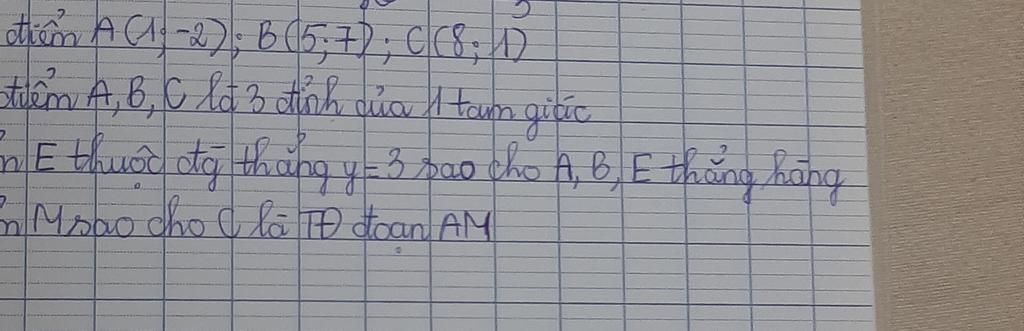 điểm A(1;-2); B(5;7); C(8;1)
điểm A, B, C là 3 đỉnh của 1 tam giác
E thuộc đg thẳng y=3 sao cho A, B, E thẳng hàng
M sao cho C là TĐ đoạn AM